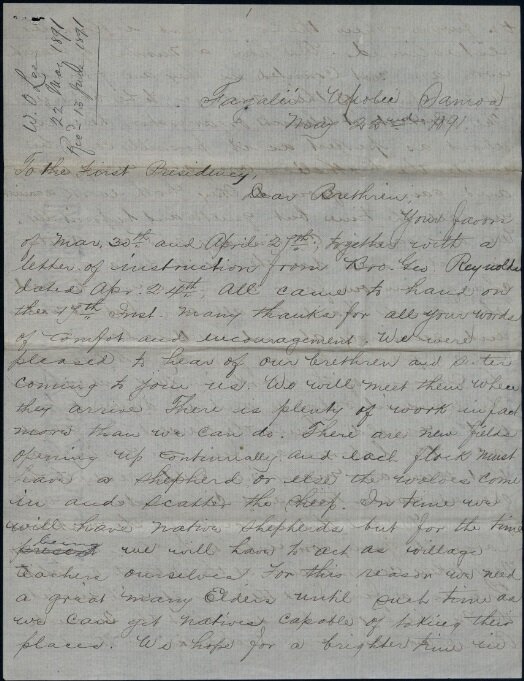 W. O. Lee
22 May 1891
Recd 13 June 1891
Fagalii Upolu Samoa
May 22nd 1891
To the First Presidency,
Dear Brethren,
Your favors
of Mar, 30th and April 27th, together with a
letter of instruction from Bro. Geo. Reynolds
dated Apr. 24th, All came to hand on
the 17th Inst. Many thanks for all your words
of comfot and encouragement. We were
pleased to hear of our brethren and sister
coming to join us. We will meet them when
they arrive There is plenty of work in fact
more than we can do. There are new fields
opening up continually and each flock must
have a shepherd or else the wolves come
in and scatter the sheep. In time we
will have native shepherds but for the time
being
present we will have to act as village
teachers ourselves. For this reason we need
a great many Elders until such time as
we can get natives capable of taking their
places. We hope for a brighter time in